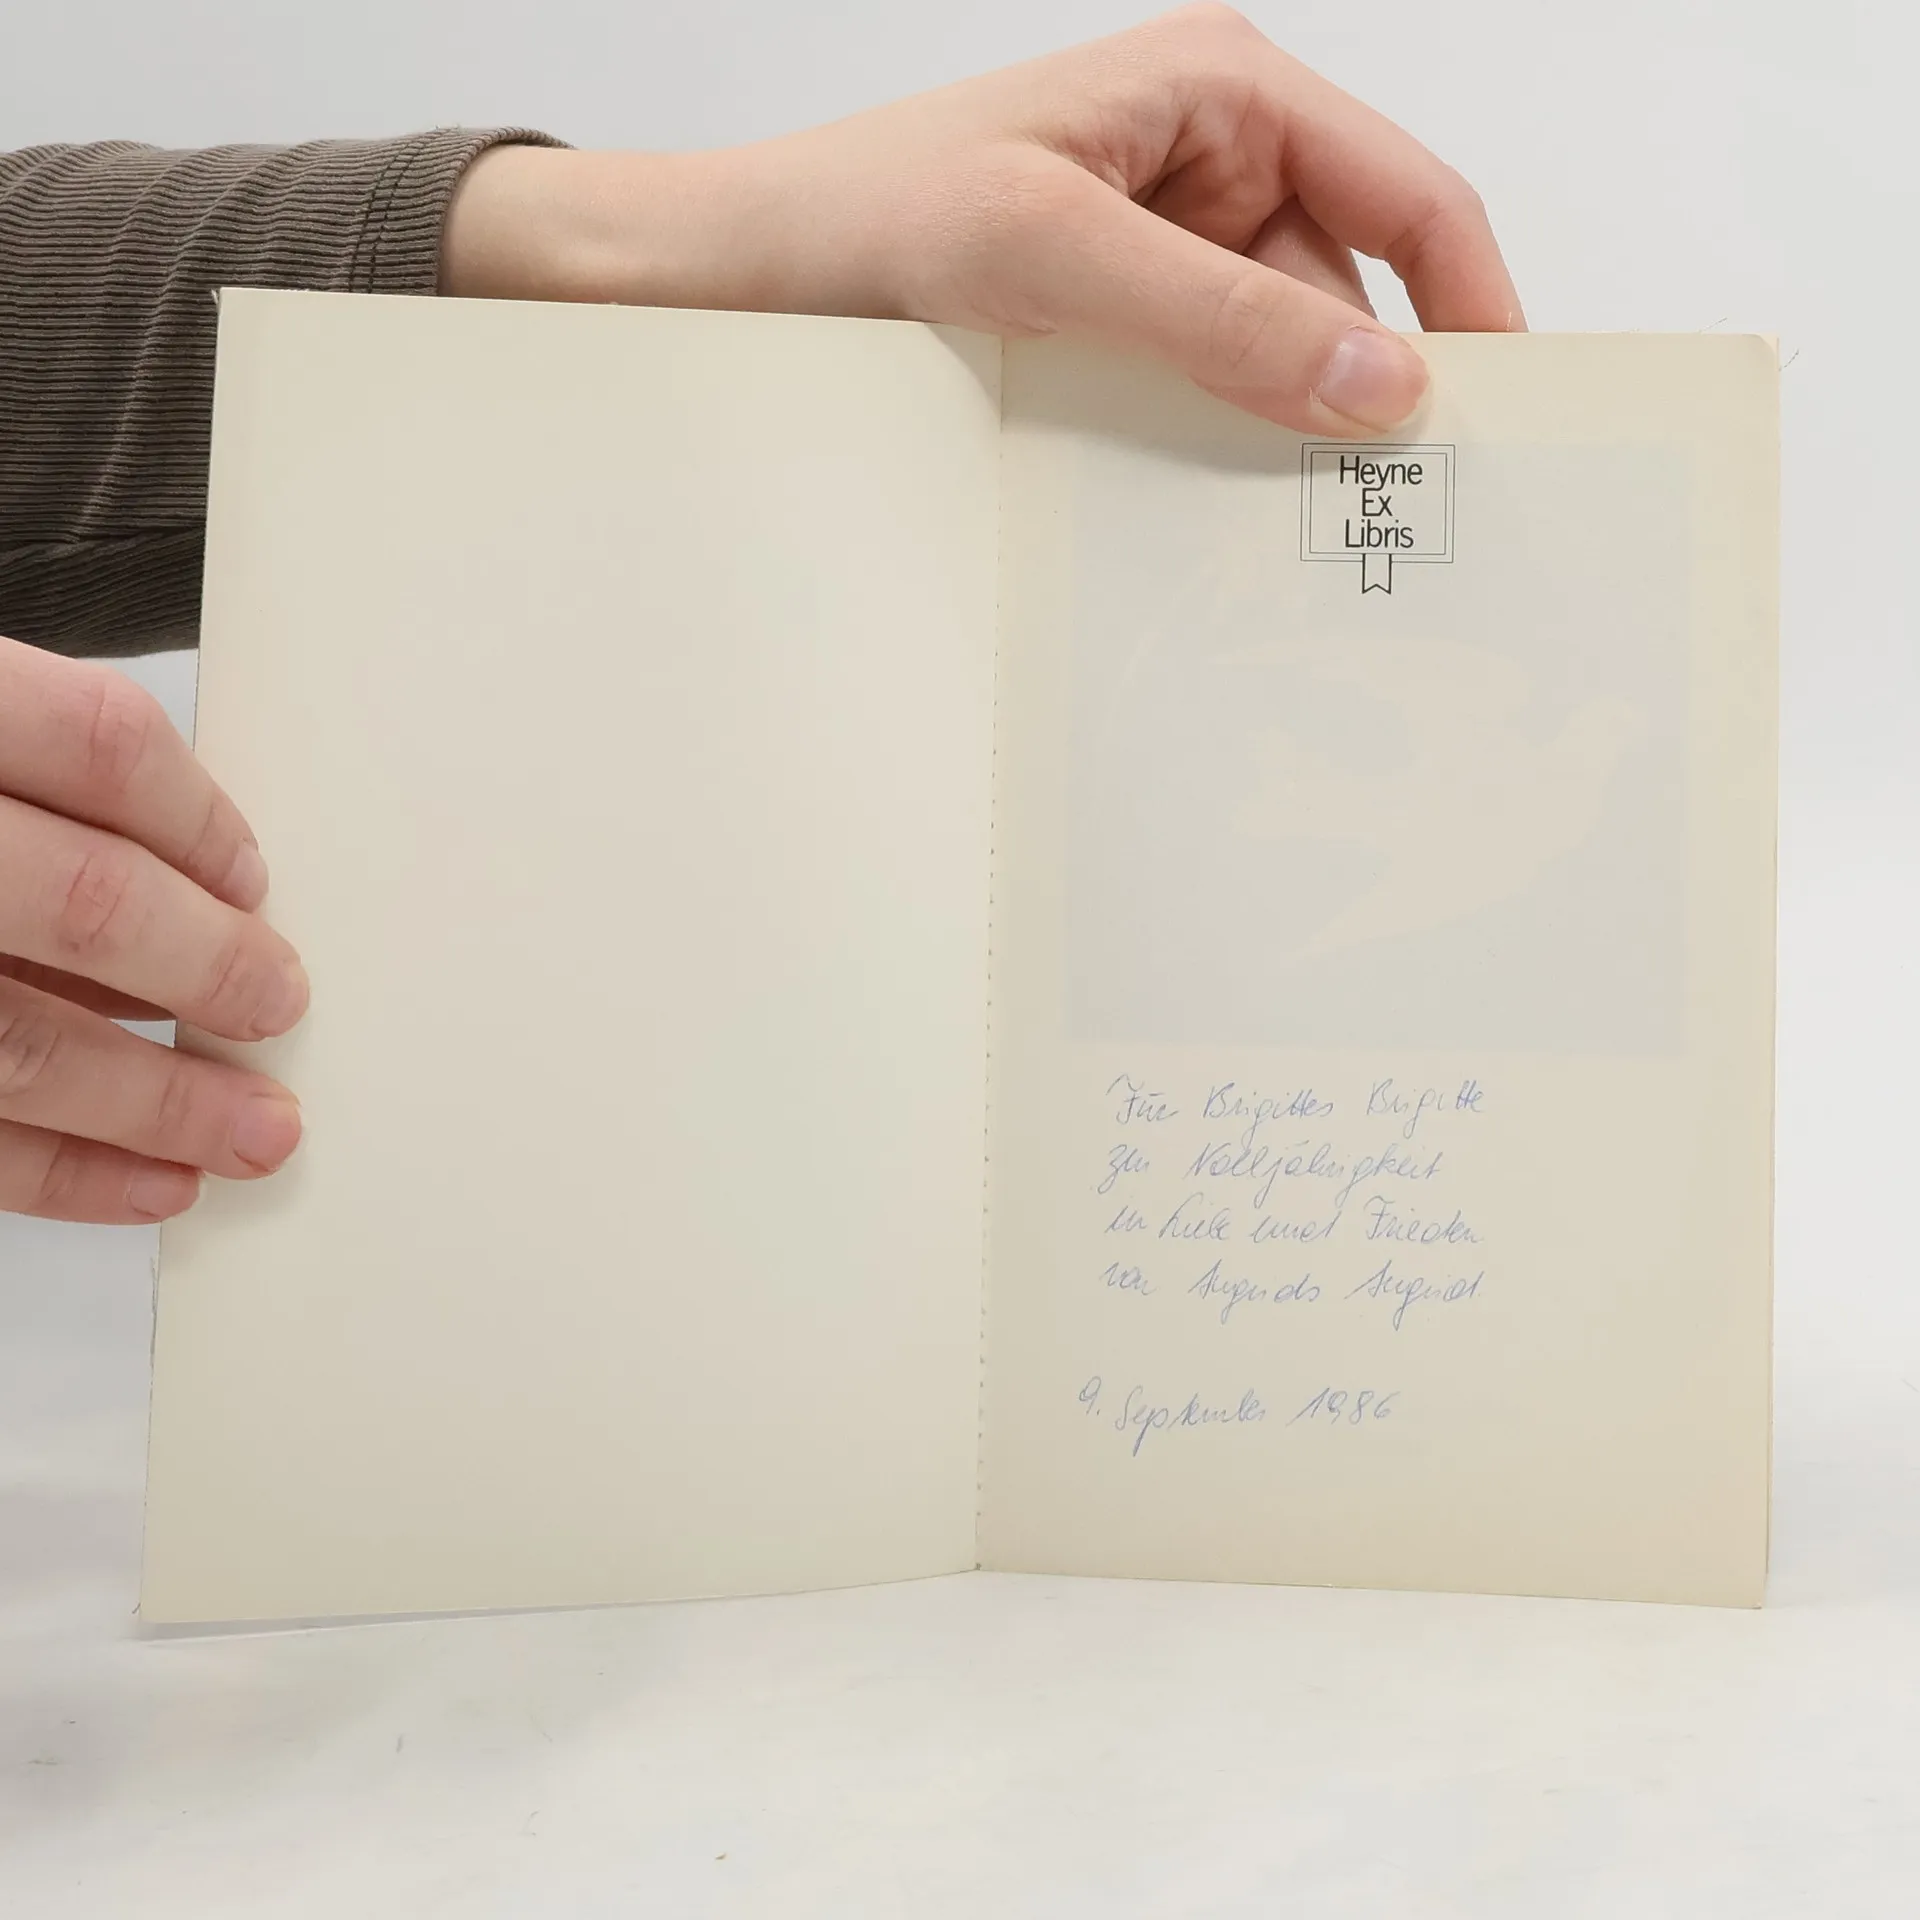 Heyne
Ex
Libris
Für Brigittes Brigitte
zur Volljährigkeit
in Liebe und Frieden
von
9. September 1986